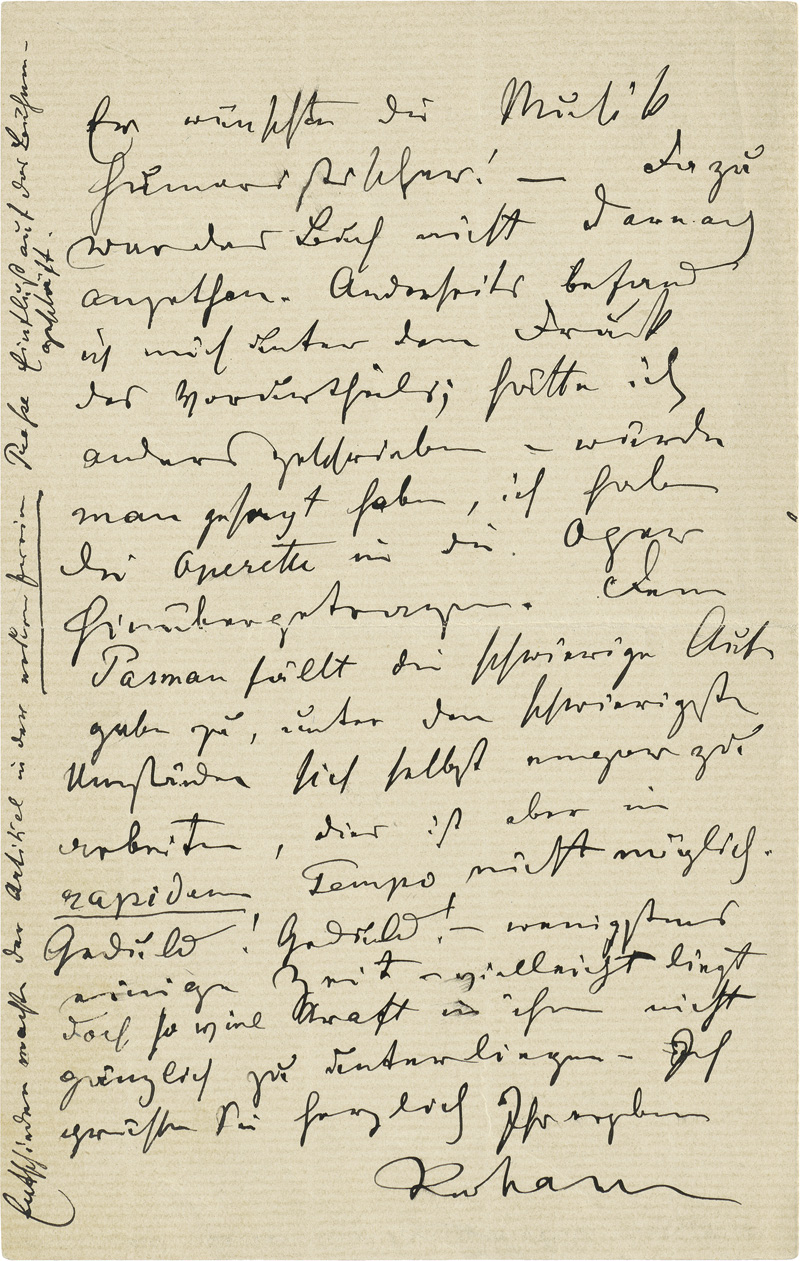 Er wünschte die Musik
humoristischer! — Dazu
war das Buch nicht darnach
angethan. Anderseits befand
ich mich unter dem Druck
des Vorurtheils; hätte ich
anders geschrieben – würde
man gesagt haben, ich habe
die Operette in die Oper
hinübergetragen. Dem
Pasman fällt die schwierige Auf-
gabe zu, unter den schwierigsten
Umständen sich selbst empor zu
arbeiten, dies ist aber im
rapidem Tempo nicht möglich.
Geduld! Geduld! – wenigstens
einige Zeit – vielleicht liegt
doch so viel Kraft in ihm nicht
gänzlich zu unterliegen – Ich
grüße Sie herzlich Ihr ergeben
Johann
Entschieden machte der Artikel in der neuen freien Presse Einfluß auf das Publikum-